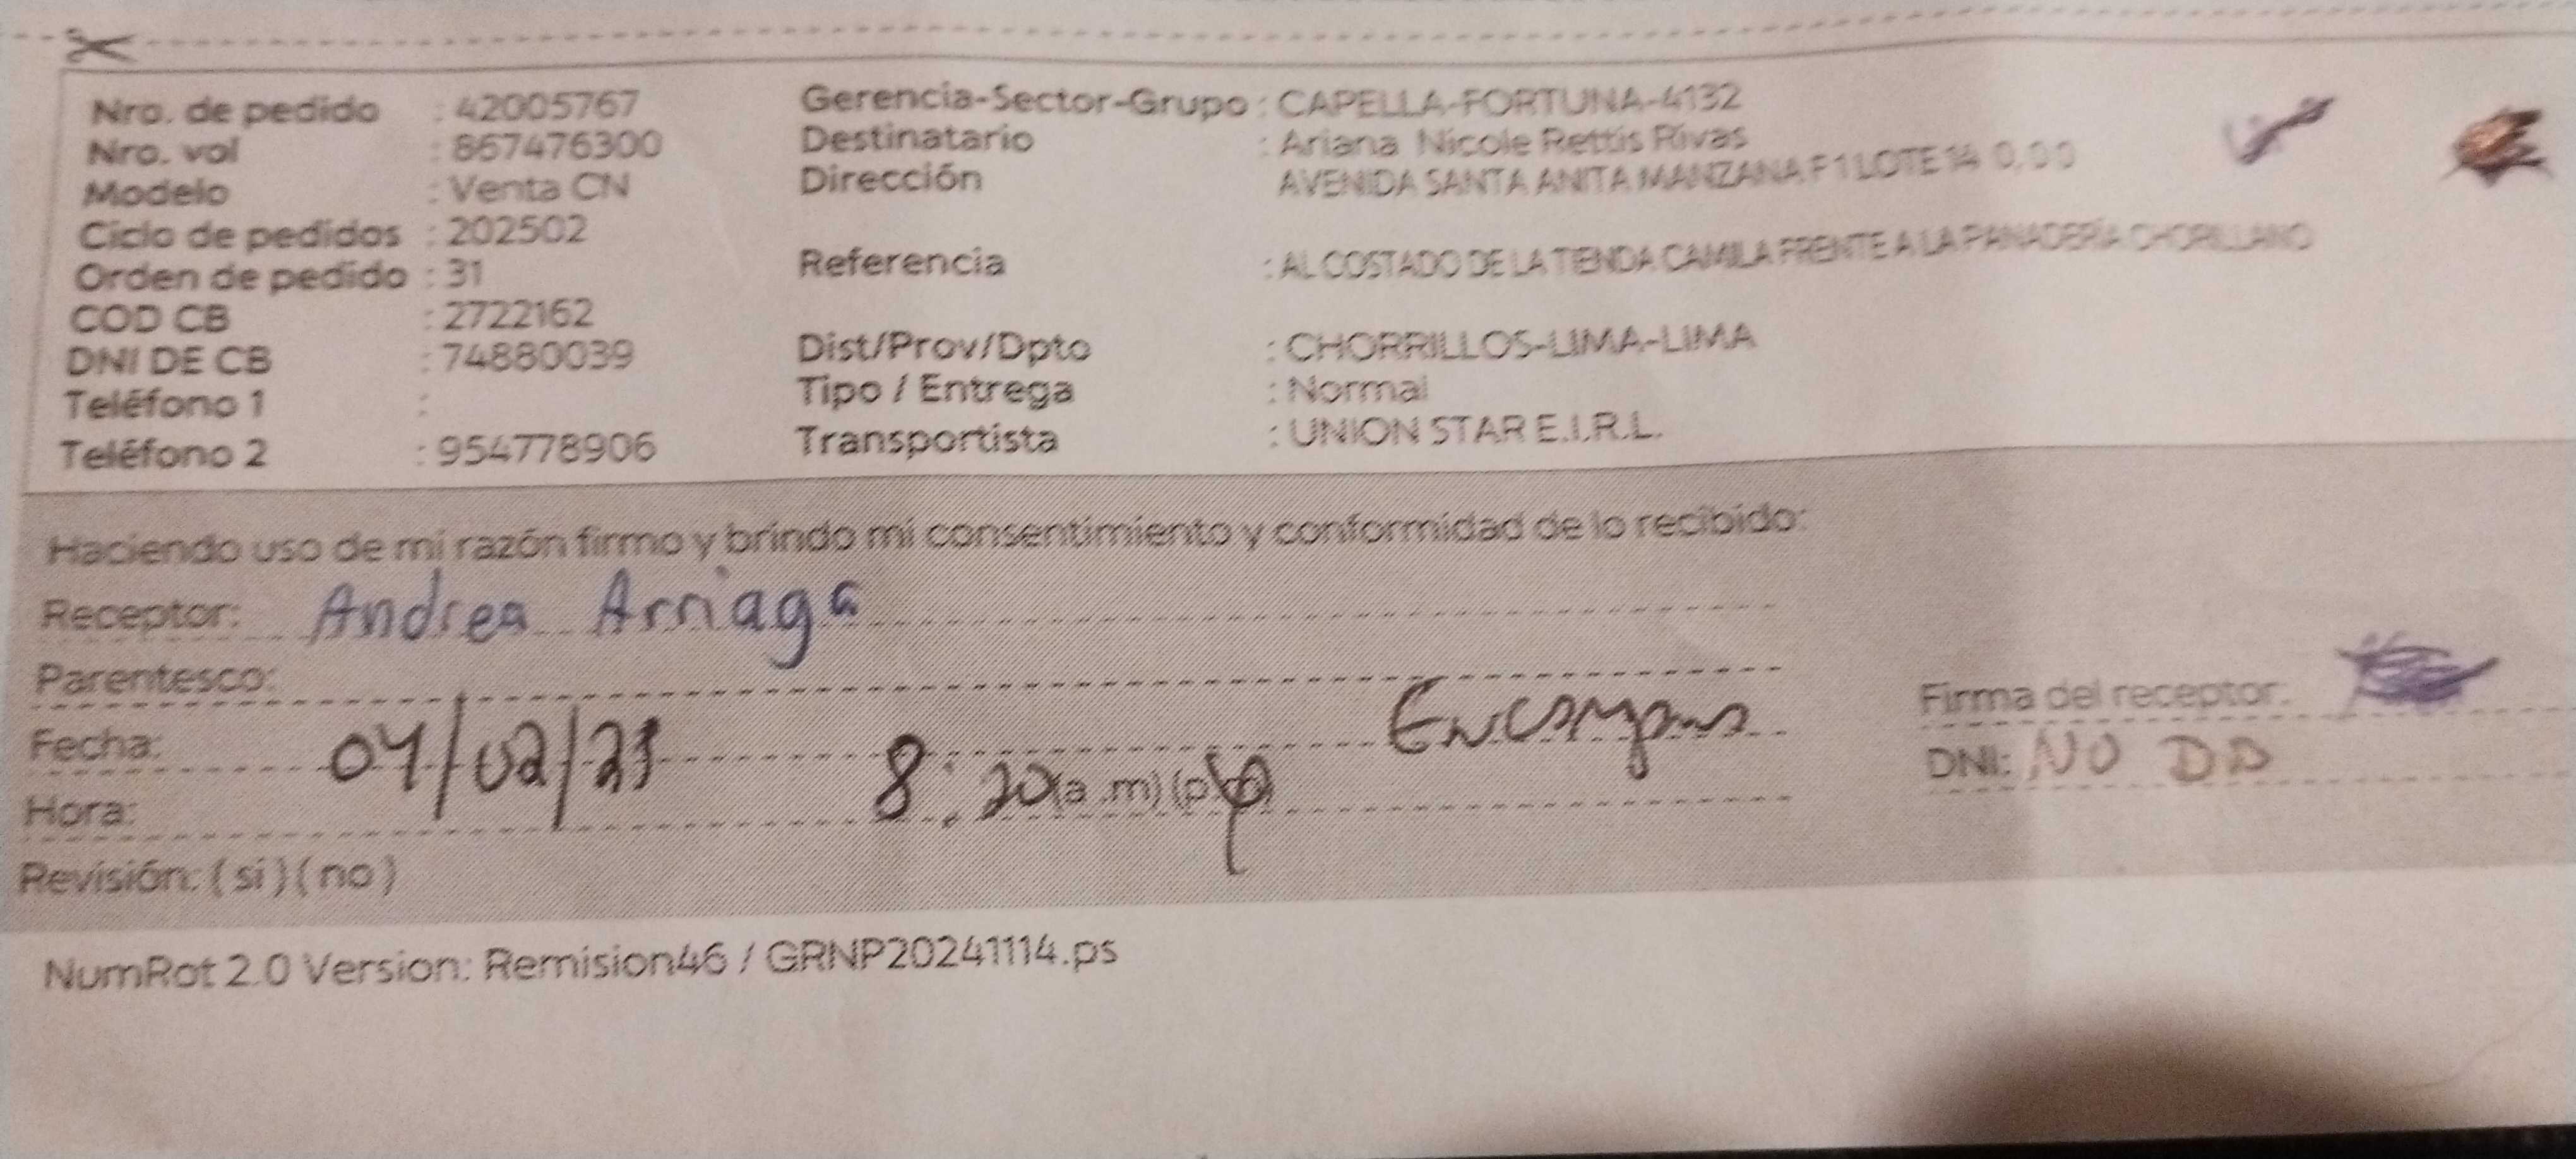 Nro. de pedido : 42005767
Nro. vol : 867476300
Modelo : Venta CN
Ciclo de pedidos : 202502
Orden de pedido : 31
COD CB : 2722162
DNI DE CB : 74880039
Teléfono 1 :
Teléfono 2 : 954778906
Gerencia-Sector-Grupo : CAPELLA-FORTUNA-4132
Destinatario : Ariana Nicole Rettis Rivas
Dirección AVENIDA SANTA ANITA MANZANA F1 LOTE 14 0,0 0
Referencia : AL COSTADO DE LA TIENDA CAMILA FRENTE A LA PANADERÍA CHORILLANO
Dist/Prov/Dpto : CHORRILLOS-LIMA-LIMA
Tipo / Entrega : Normal
Transportista : UNION STAR E.I.R.L.
Haciendo uso de mi razón firmo y brindo mi consentimiento y conformidad de lo recibido:
Receptor: Andrea Arriaga
Parentesco:
Fecha: 04/02/25
Hora: 8:20 (a.m) (p.m)
Revisión: ( si ) ( no )
Firma del receptor:
DNI: NO DA
NumRot 2.0 Version: Remision46 / GRNP20241114.ps